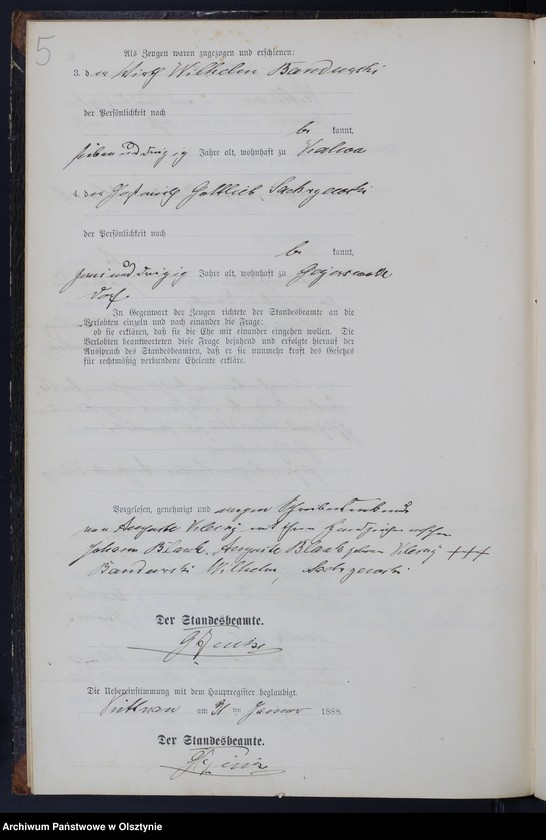 5
Als Zeugen waren zugezogen und erschienen:
3. der Wirth Wilhelm Bandurski
der Persönlichkeit nach
be kannt,
siebenunddreizig Jahre alt, wohnhaft zu
4. der Gastwirth Gottlieb
der Persönlichkeit nach
be kannt,
zweiunddreizig Jahre alt, wohnhaft zu
dorf.
In Gegenwart der Zeugen richtete der Standesbeamte an die
Verlobten einzeln und nach einander die Frage:
ob sie erklären, daß sie die Ehe mit einander eingehen wollen. Die
Verlobten beantworteten diese Frage bejahend und erfolgte hierauf der
Ausspruch des Standesbeamten, daß er sie nunmehr kraft des Gesetzes
für rechtmäßig verbundene Eheleute erkläre.
Vorgelesen, genehmigt und wegen
von Auguste mit ihrem Handzeichen versehen
Johann Blank. Auguste Blank geborne +++
Bandurski Wilhelm,
Der Standesbeamte.
Die Uebereinstimmung mit dem Hauptregister beglaubigt.
am 31 ten Januar 1888.
Der Standesbeamte.
Archiwum Państwowe w Olsztynie